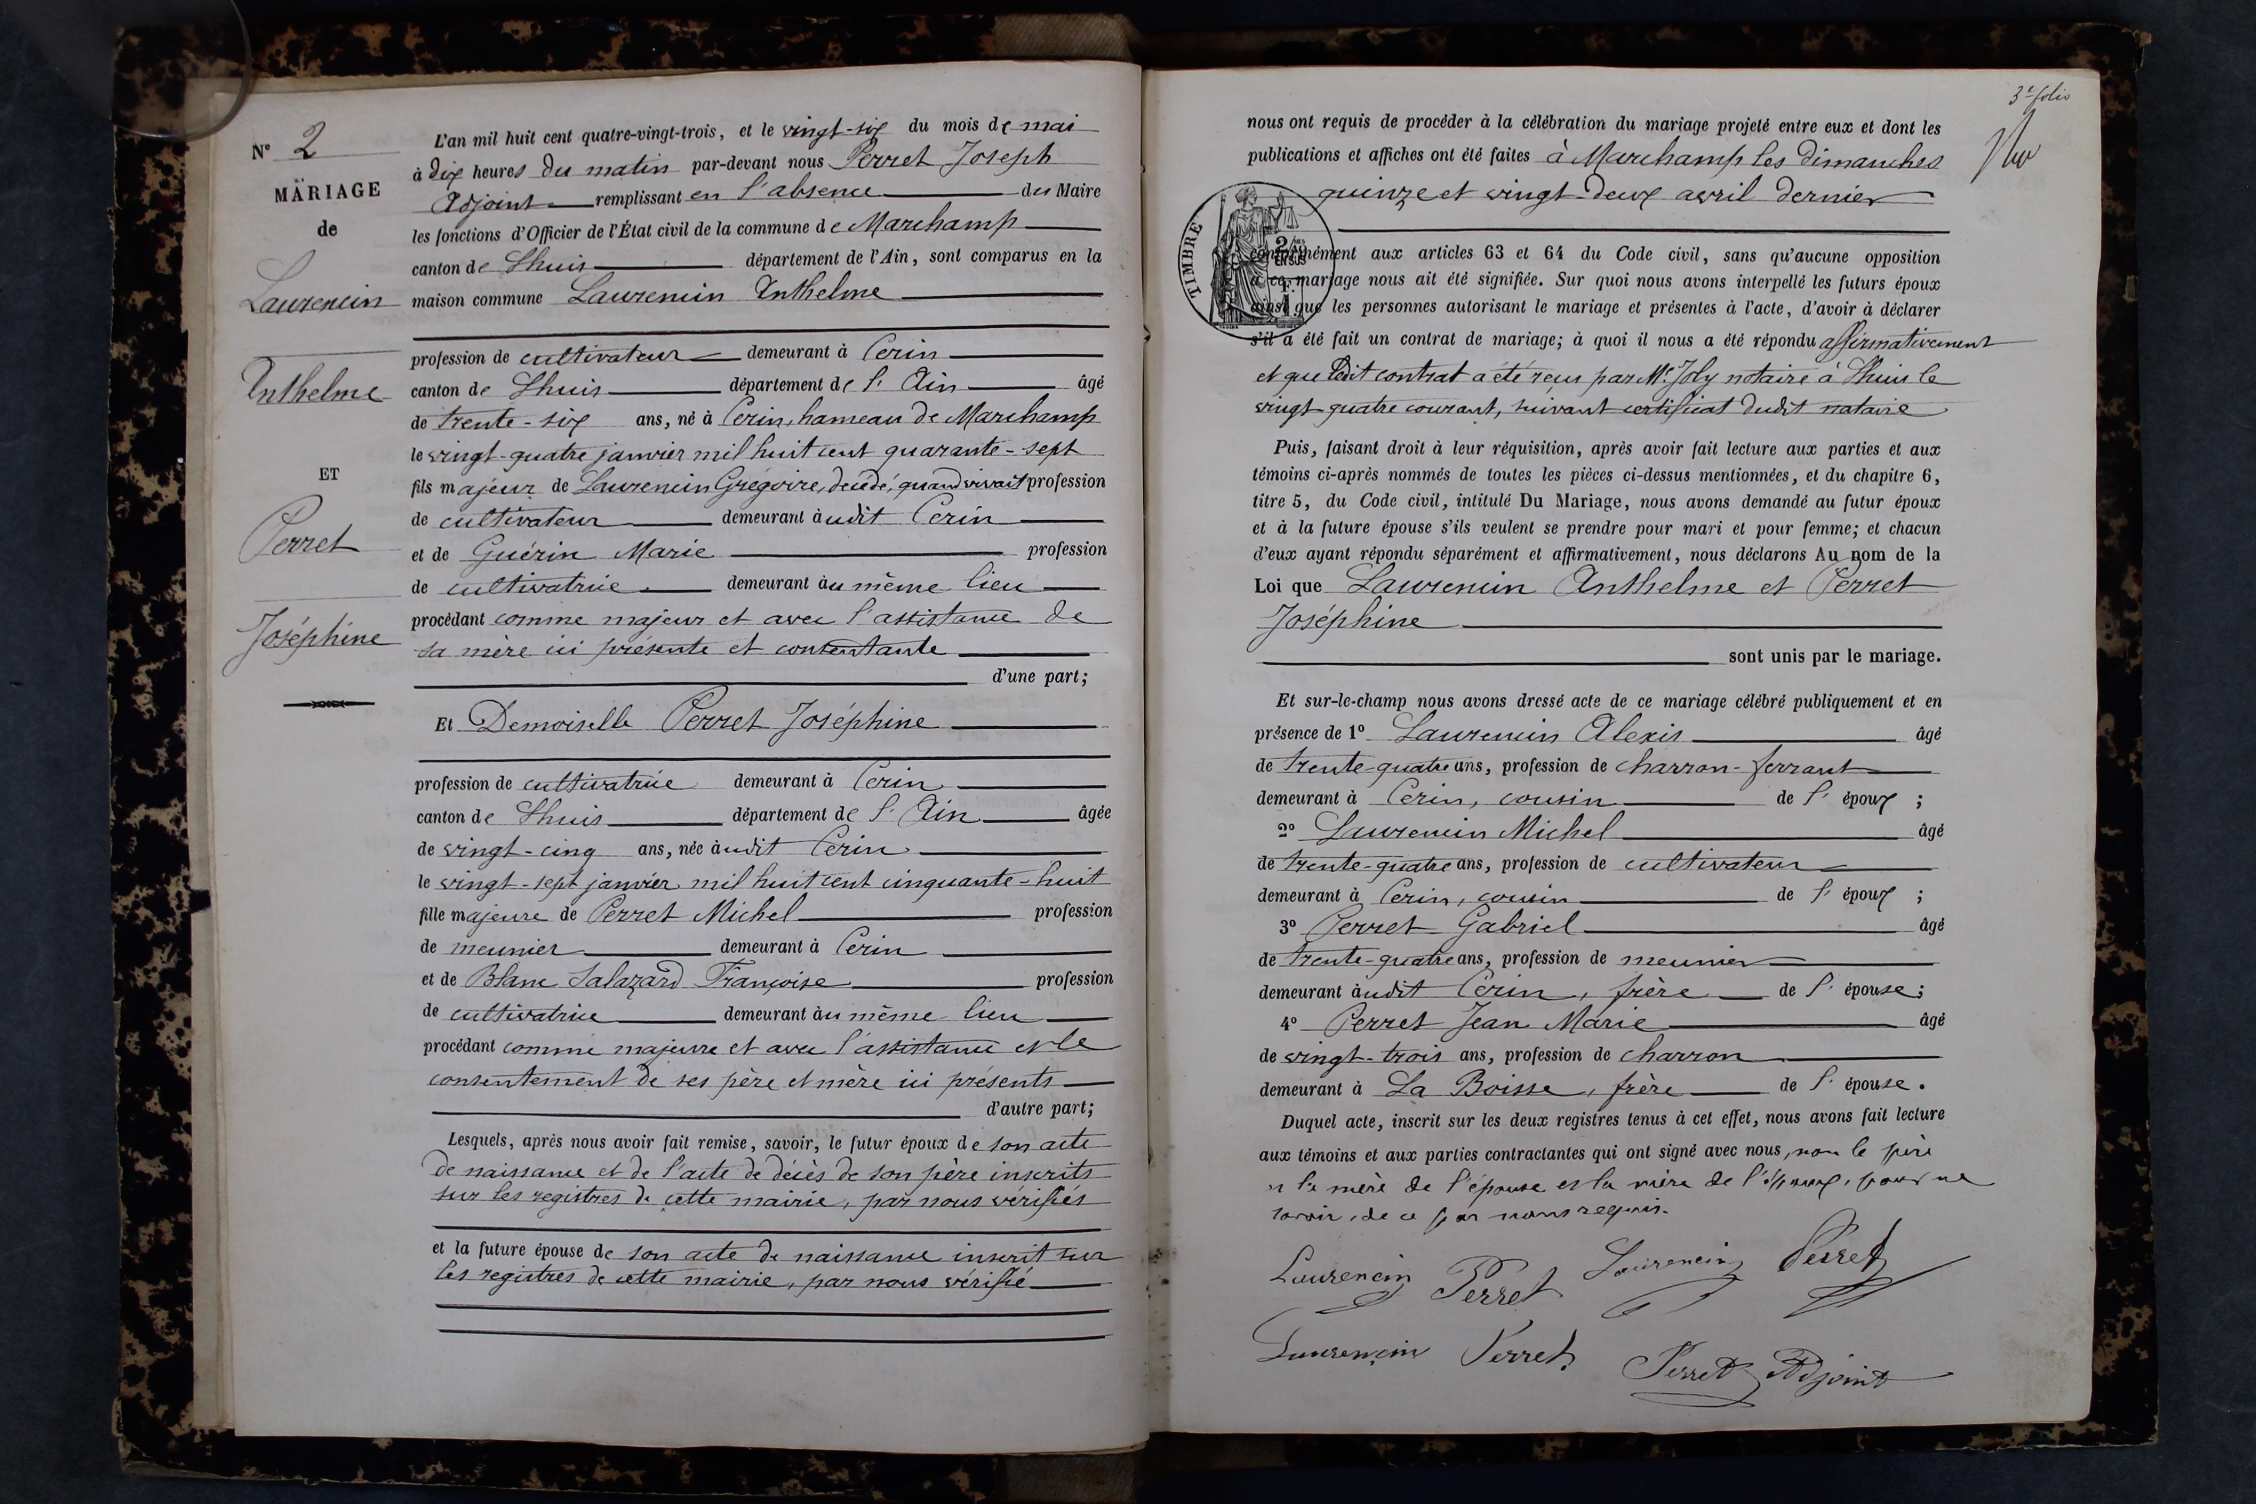 N° 2
MARIAGE
de
Laurencin
Anthelme
ET
Perret
Joséphine
L'an mil huit cent quatre-vingt-trois, et le vingt-six du mois de mai
à dix heures du matin par-devant nous Perret Joseph
Adjoint remplissant en l'absence du Maire
les fonctions d'Officier de l'État civil de la commune de Marchamp
canton de Lhuis département de l'Ain, sont comparus en la
maison commune Laurencin Anthelme
profession de cultivateur demeurant à Cerin
canton de Lhuis département de l'Ain âgé
de trente-six ans, né à Cerin, hameau de Marchamp
le vingt-quatre janvier mil huit cent quarante-sept
fils majeur de Laurencin Grégoire, décédé, quand vivait profession
de cultivateur demeurant àudit Cerin
et de Guérin Marie profession
de cultivatrice demeurant àu même lieu
procédant comme majeur et avec l'assistance de
sa mère ici présente et consentante
d'une part;
Et Demoiselle Perret Joséphine
profession de cultivatrice demeurant à Cerin
canton de Lhuis département de l'Ain âgée
de vingt-cinq ans, née àudit Cerin
le vingt-sept janvier mil huit cent cinquante-huit
fille majeure de Perret Michel profession
de meunier demeurant à Cerin
et de Blanc Salazard Françoise profession
de cultivatrice demeurant àu même lieu
procédant comme majeure et avec l'assistance et le
consentement de ses père et mère ici présents
d'autre part;
Lesquels, après nous avoir fait remise, savoir, le futur époux de son acte
de naissance et de l'acte de décès de son père inscrits
sur les registres de cette mairie, par nous vérifiés
et la future épouse de son acte de naissance inscrit sur
les registres de cette mairie, par nous vérifié
3e folio
nous ont requis de procéder à la célébration du mariage projeté entre eux et dont les
publications et affiches ont été faites à Marchamp les dimanches
quinze et vingt-deux avril dernier
TIMBRE
2/10es
EN SUS
conformément aux articles 63 et 64 du Code civil, sans qu'aucune opposition
à ce mariage nous ait été signifiée. Sur quoi nous avons interpellé les futurs époux
ainsi que les personnes autorisant le mariage et présentes à l'acte, d'avoir à déclarer
s'il a été fait un contrat de mariage; à quoi il nous a été répondu affirmativement
et que ledit contrat a été reçu par Me Joly notaire à Lhuis le
vingt-quatre courant, suivant certificat dudit notaire
Puis, faisant droit à leur réquisition, après avoir fait lecture aux parties et aux
témoins ci-après nommés de toutes les pièces ci-dessus mentionnées, et du chapitre 6,
titre 5, du Code civil, intitulé Du Mariage, nous avons demandé au futur époux
et à la future épouse s'ils veulent se prendre pour mari et pour femme; et chacun
d'eux ayant répondu séparément et affirmativement, nous déclarons Au nom de la
Loi que Laurencin Anthelme et Perret
Joséphine
sont unis par le mariage.
Et sur-le-champ nous avons dressé acte de ce mariage célébré publiquement et en
présence de 1° Laurencin Alexis âgé
de trente-quatre ans, profession de charron-ferrant
demeurant à Cerin, cousin de l'époux ;
2° Laurencin Michel âgé
de trente-quatre ans, profession de cultivateur
demeurant à Cerin, cousin de l'époux ;
3° Perret Gabriel âgé
de trente-quatre ans, profession de meunier
demeurant àudit Cerin, frère de l'épouse;
4° Perret Jean Marie âgé
de vingt-trois ans, profession de charron
demeurant à La Boisse, frère de l'épouse.
Duquel acte, inscrit sur les deux registres tenus à cet effet, nous avons fait lecture
aux témoins et aux parties contractantes qui ont signé avec nous, non le père
ni la mère de l'épouse et la mère de l'époux, pour ne
savoir, de ce par nous requis.
Laurencin Perret Laurencin Perret
Laurencin Perret Perret Adjoint